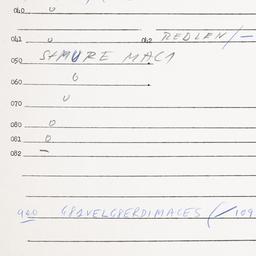 040 0
041 0 042 REDLEN/-
050 STMURE MAC1
060 0
070 0
080 0
081 0
082 -
920 GRAVELGPERDIMAGES (/109